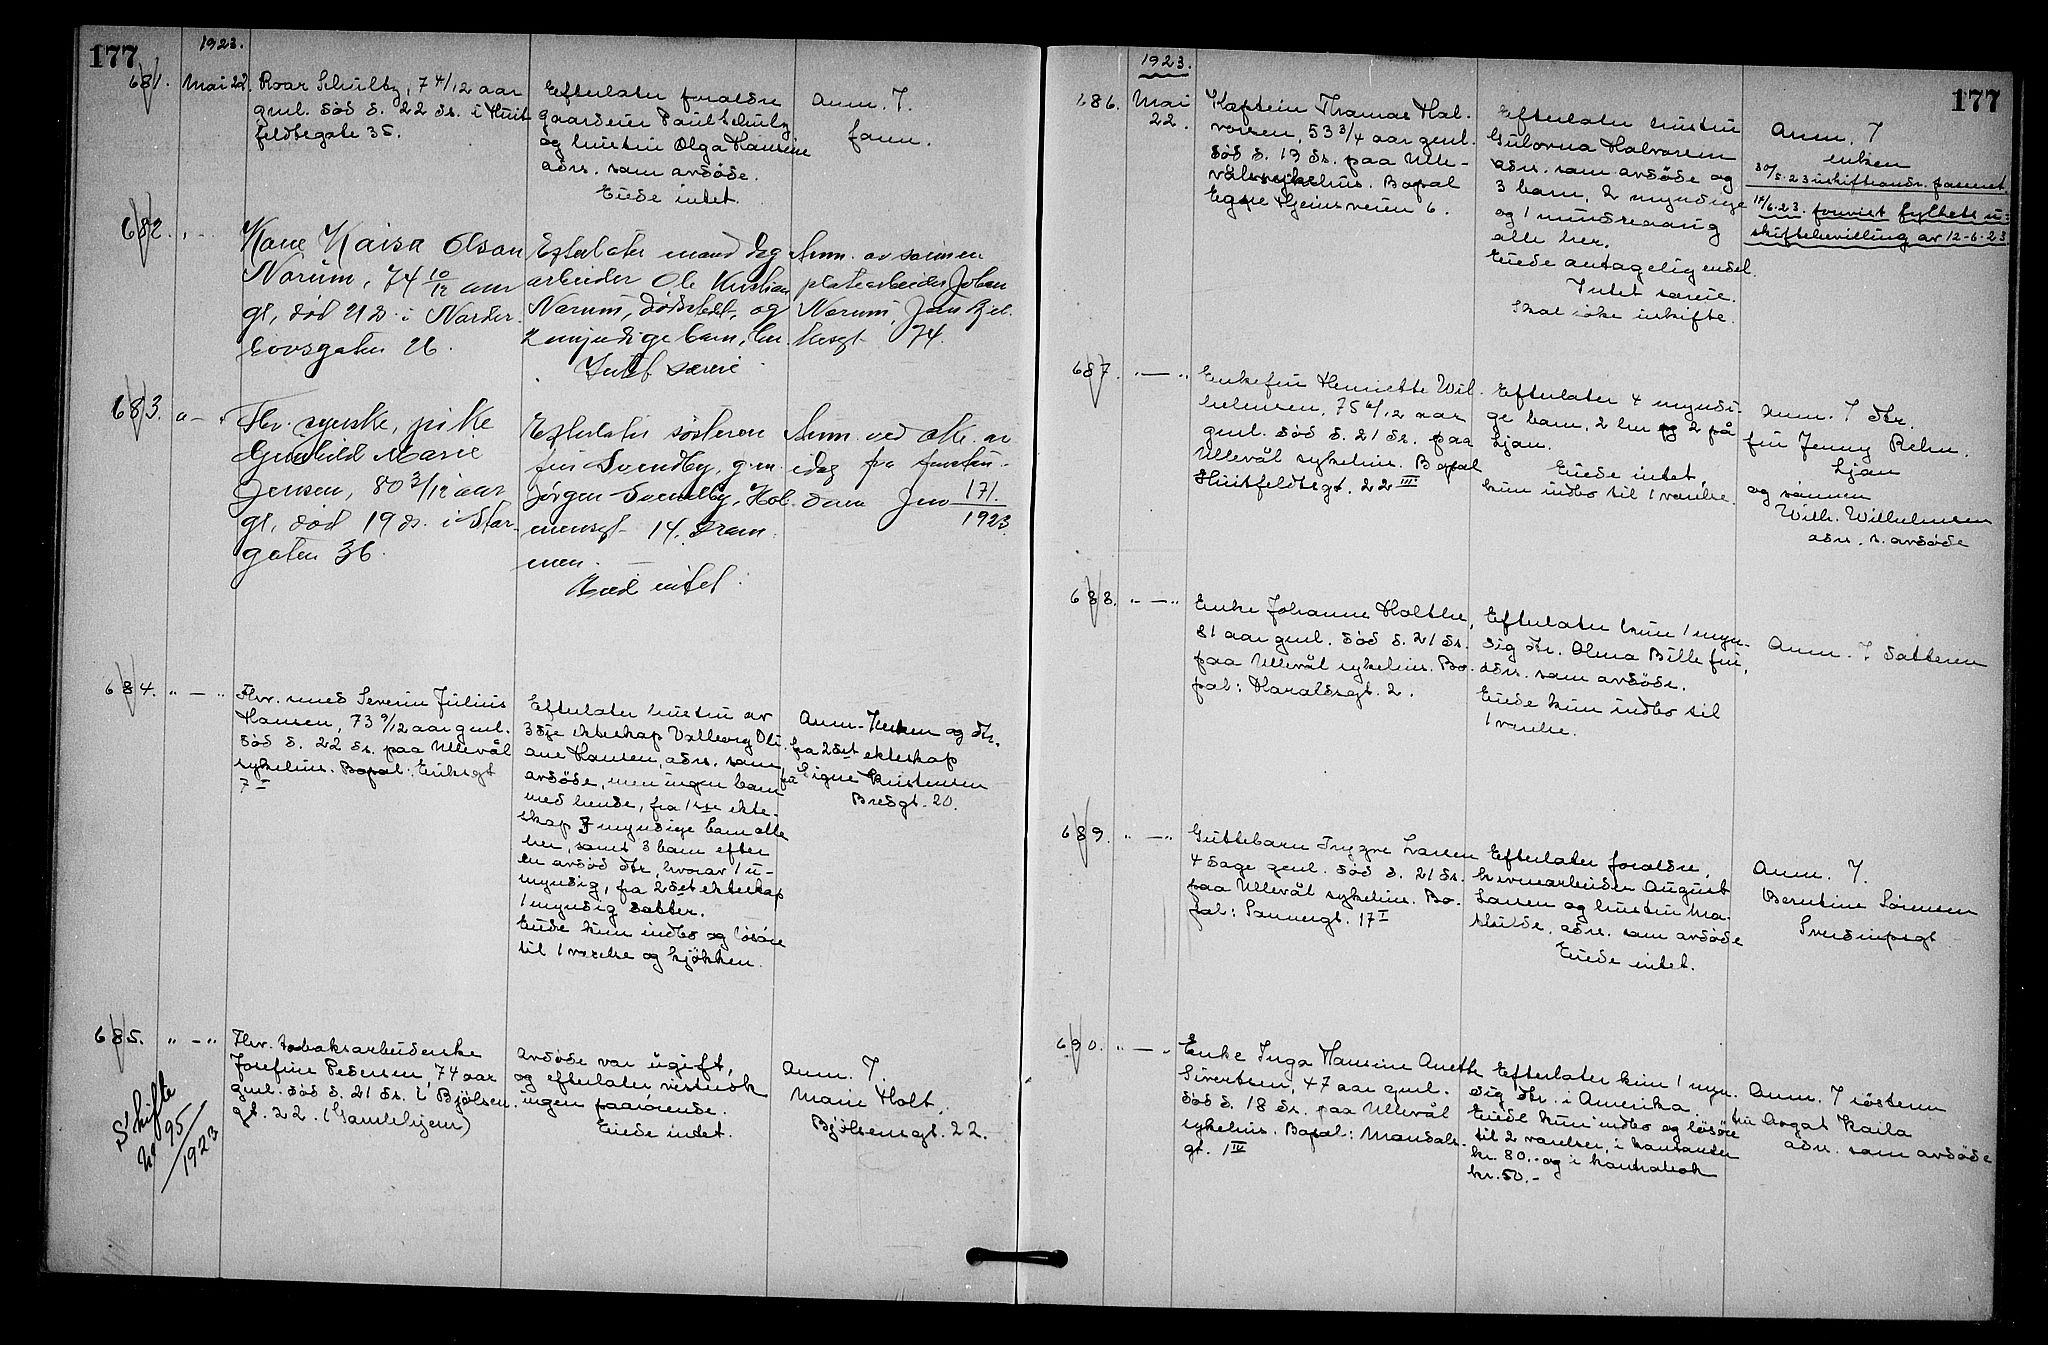 177
1923.
681. Mai 22.
Roar Schulby, 7 4/12 aar
gml. død d. 22 ds. i Huit
feldtsgate 35.
Efterlater foraldre
gaardeier Paul Schulby
og hustru Olga Hansine
adrs. som avdøde.
Eiede intet.
Anm. 7.
faren.
682. " —
Kone Kaisa Olson
Norum, 74 10/12 aar
gl, død 21 ds. i Norder
hovsgaten 26.
Efterlater mand dag
arbeider Ole Kristian
Norum, dødsstedet, og
2 myndige barn, her.
Intet særeie
Anm. av sønnen
platearbeider Johan
Norum, Jens Bjel
kesgt 74.
683. " — "
Fhv. syerske, pike
Gunhild Marie
Jensen, 80 3/12 aar
gl, død 19 ds. i Stor
gaten 36.
Efterlater søsteren
fru Svendby, g.m.
Jørgen Svendby, Hol
mensgt 14. Dram
men.
Eied intet.
Anm. ved skr. av
idag fra
Jnr 171.
1923.
684. " — "
Fhv. Severin Julius
Hansen, 73 9/12 aar gml.
død d. 22 ds. paa Ullevål
sykehus. Bopæl: Eriksgt
7 I
Efterlater hustru av
3dje ekteskap Valborg Oli
ane Hansen, adrs. som
avdøde, men ingen barn
med hende, fra 1ste ekte-
skap 3 myndige barn alle
her, samt 3 barn efter
en avdød dtr, hvorav 1 u-
myndig, fra 2det ekteskap
1 myndig datter.
Eiede kun indbo og løsøre
til 1 værelse og kjøkken.
Anm. Enken og dtr.
fra 2det ekteskap
fru Signe Kristensen
Bredgt. 20.
685. " — "
Fhv. tobaksarbeiderske
Josefine Pedersen, 74 aar
gml. død d. 21 ds. i Bjølsen
gt. 22. (Gamlehjem)
Avdøde var ugift,
og efterlater vistnok
ingen paarørende.
Eiede intet.
Anm. 7.
Marie Holt.
Bjølsensgt. 22.
Skifte
nr 95
1923
177
1923.
686. Mai
22.
Kaptein Thomas Hal.
vorsen, 53 3/4 aar gml.
død d. 19 ds. paa Ulle-
vålssykehus. Bopæl
Egne Hjemsveien 6.
Efterlater hustru
Gulovna Halvorsen
adrs. som avdøde og
3 barn, 2 myndige
og 1 mindreaarig
alle her.
Eiede antagelig endel.
Intet særeie.
Skal ikke inskifte.
Anm. 7
enken
30/5.23 uskifteandr. passert
14/6.23. forevist fylkets u-
skiftebevilling av 12-6-23
687. " — "
Enkefru Henriette Wil.
helmsen, 75 6/12 aar
gml. død d. 21 ds. paa
Ullevål sykehus. Bopæl
Huitfeldtsgt. 22 III
Efterlater 4 myndi-
ge barn, 2 her og 2 på
Ljan.
Eiede intet,
kun indbo til 1 værelse.
Anm. 7 dtr.
fru Jenny Rehn.
Ljan
og sønnen
Wilh. Wilhelmsen
adrs. s. avdøde
688. " — "
Enke Johanne Holthe,
81 aar gml. død d. 21 ds.
paa Ullevål sykehus. Bo.
pæl: Haraldsgt. 2.
Efterlater kun 1 myn-
dig dtr. Olma Bille fru,
adrs. som avdøde.
Eiede kun indbo til
1 værelse.
Anm. 7. datteren
689. " — "
Guttebarn Trygve Larsen
4 dage gml. død d. 21 ds.
paa Ullevål sykehus. Bo.
pæl: Sannergt. 17 I
Efterlater foraldre,
skruearbeider August
Larsen og hustru Ma-
thilde, adrs. som avdøde
Eiede intet.
Anm. 7.
Berntine Sørensen
690. " — "
Enke Inga Hansine Aneth
Sivertsen, 47 aar gml.
død d. 18 ds. paa Ullevål
sykehus. Bopæl: Mandals.
gt. 1 IV
Efterlater kun 1 myn.
dig dtr. i Amerika.
Eiede kun indbo og løsøre
til 2 værelser, i kontanter
kr. 80.- og i bankbok
kr. 50.-
Anm. 7 søsteren
fru Aagot Kaila
adr. som avdøde